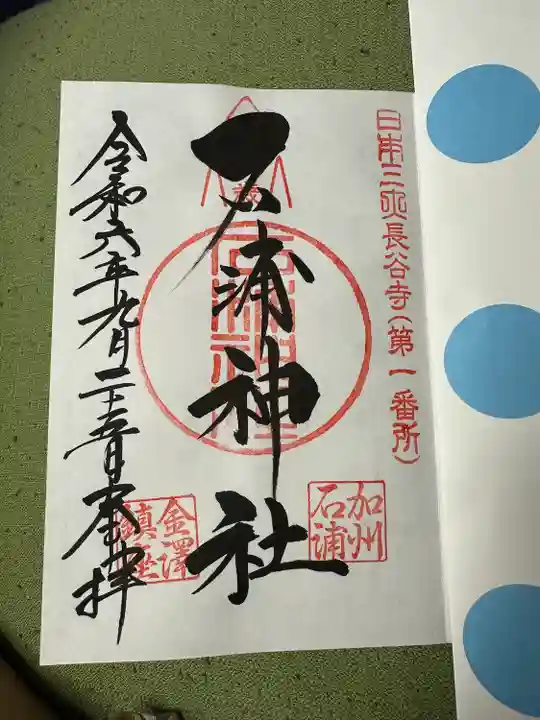 日本三所長谷寺(第一番所)
加州
石浦
石浦神社
金澤
鎮座
令和六年九月二十五日 奉拝